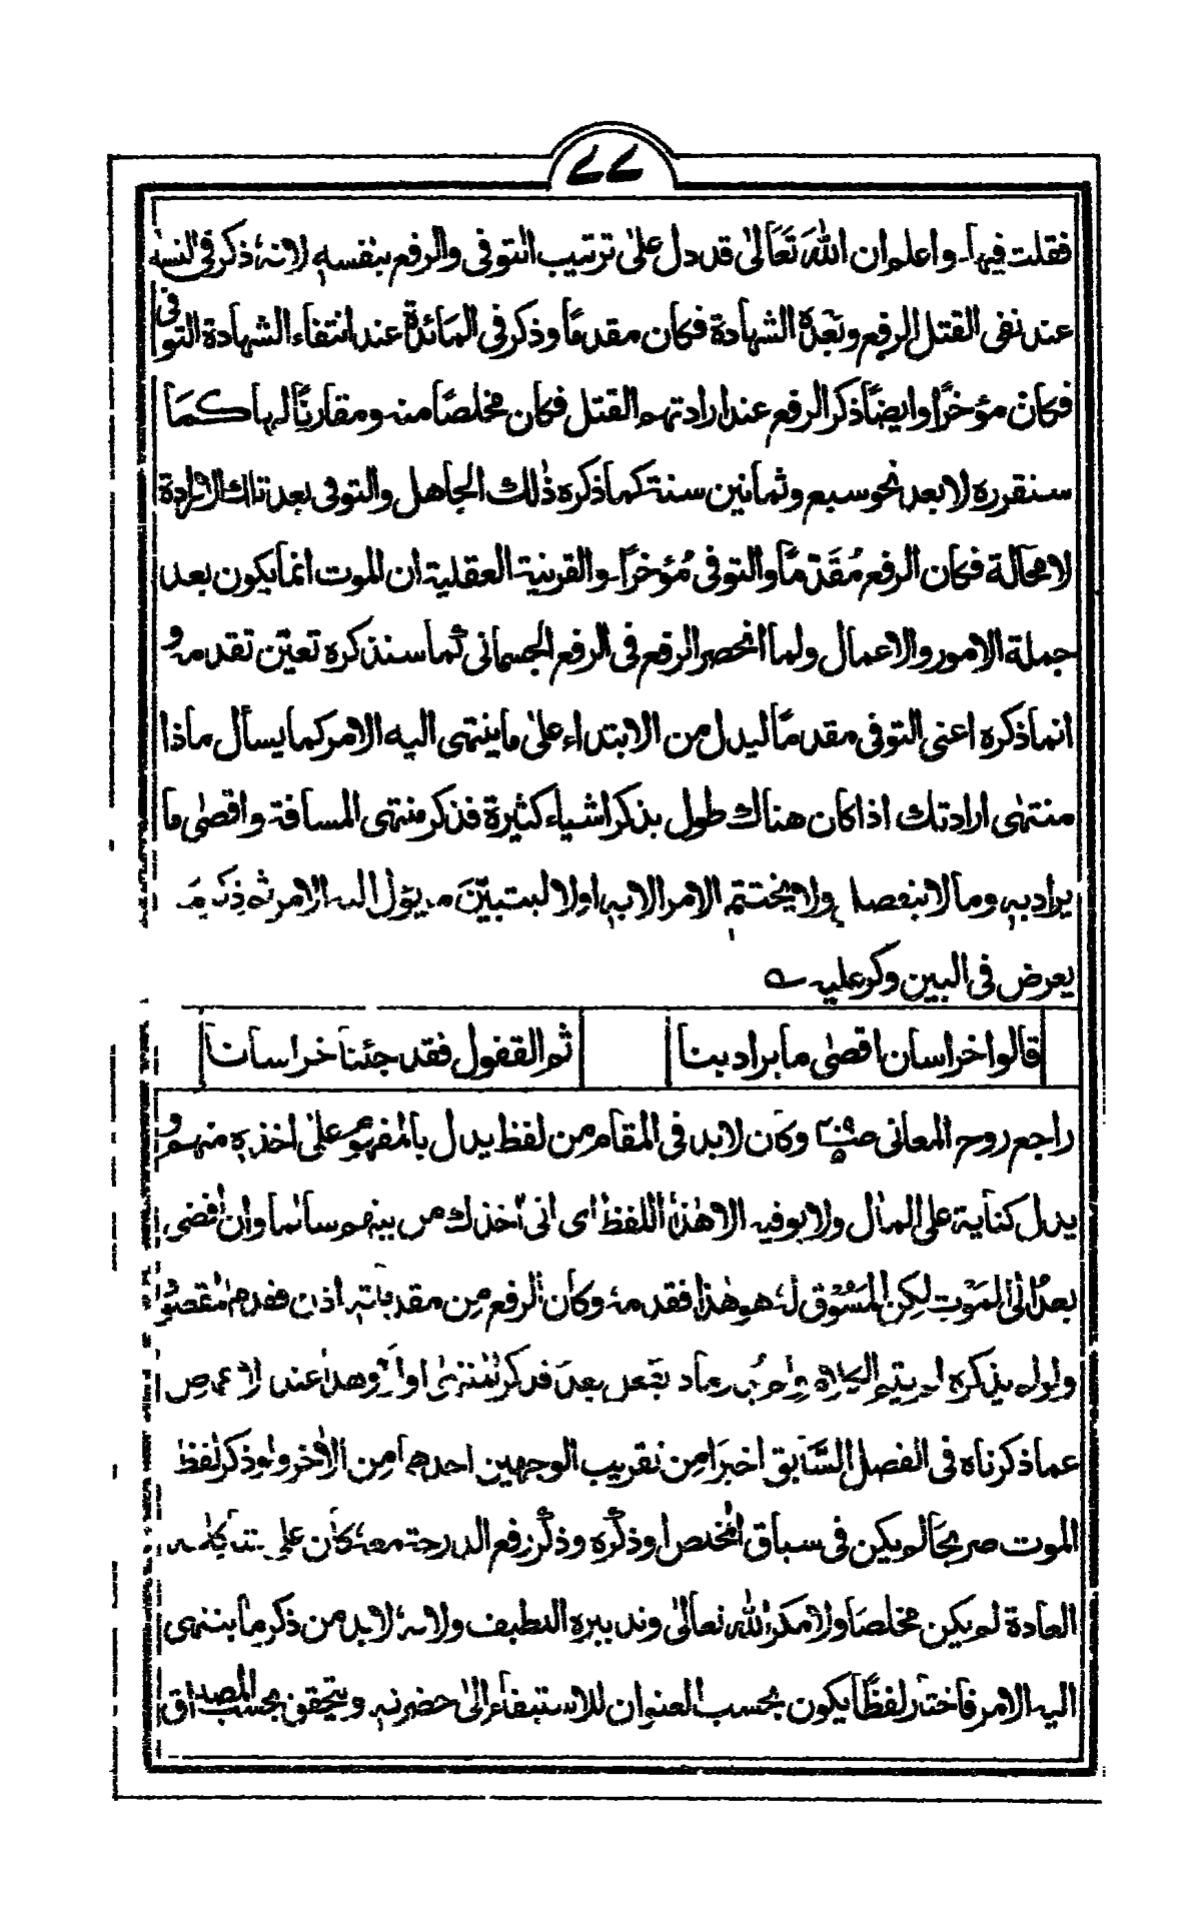 ٧٧
فقلت فيها۔ واعلم ان اللهَ تَعَالىٰ قد دل علىٰ ترتيب التوفى والرفع بنفسهٖ لانهٗ ذكر فى النسآء
عند نفى القتل الرفع وبَعْدَهٗ الشهادة فكان مقدمًا وذكر فى المَائدة عند انتفاء الشهادة التوفى
فكان مؤخرًا وايضًا ذكر الرفع عند ارادتهم القتل فكان مخلصًا منه ومقارنًا لها كمَا
سنقرره لا بعد نحو سبع وثمانين سنة كما ذكره ذٰلك الجاهل والتوفى بعد تلك الارادة
لا محالة فكان الرفع مُقَدّمًا والتوفى مُؤخرًا۔ والقرينة العقلية ان الموت انما يكون بعد
جملة الامور والاعمال ولما انحصر الرفع فى الرفع الجسمانى كما سنذكره تعيّن تقدمه و
انما ذكره اعنى التوفى مقدمًا ليدل من الابتداء علىٰ ما ينتهى اليه الامر كما يسأل ماذا
منتهٰى ارادتك اذا كان هناك طول بذكر اشياء كثيرة فذكر منتهى المسافة واقصٰى ما
يراد بهٖ وما لا ولا يختتم الامر الا بهٖ اولا ليتبيّنَ ما يؤل اليه الامر ثم ذكر مَا
يعرض فى البين وكر عليه ے
قالوا خراسان اقصٰى ما يراد بنا ثم القفول فقد جئنا خراسانا
راجع روح المعانى وكان لا بد فى المقام من لفظ يدل بالمفهوم علىٰ اخذه منهم و
يدل كناية على المآل ولا يوفيه الا هٰذا اللفظ اى انى اٰخذك من بينهم سالما وان افضى
بعدُ الى المَوْت لٰكن المسُوْق لهٗ هو هٰذا فقدمهٗ وكان الرفع مِن مقدماتهٖ اذن فقدم المقصود
ولو لم يذكره لم يتم الكلام بعدَ فذكر المنتهٰى اولًا وهذا عند الاغماض
عما ذكرناه فى الفصل السَّابق اخيرَا مِن تقريب الوجهين احدهما من الاٰخر ولو ذكر لفظ
الموت صريحًا لم يكن فى سياق التخلص او ذكره وذكر رفع الدرجة معهٗ كان علىٰ
العادة لم يكن مخلصًا ولا مكر الله تعالىٰ وتدبيره اللطيف ولانهٗ لا بد من ذكر ما ينتهى
اليه الامر فاختار لفظًا يكون بحسب العنوان للاستيفاء الىٰ حضرتهٖ ويتحقق بحسب المصداق